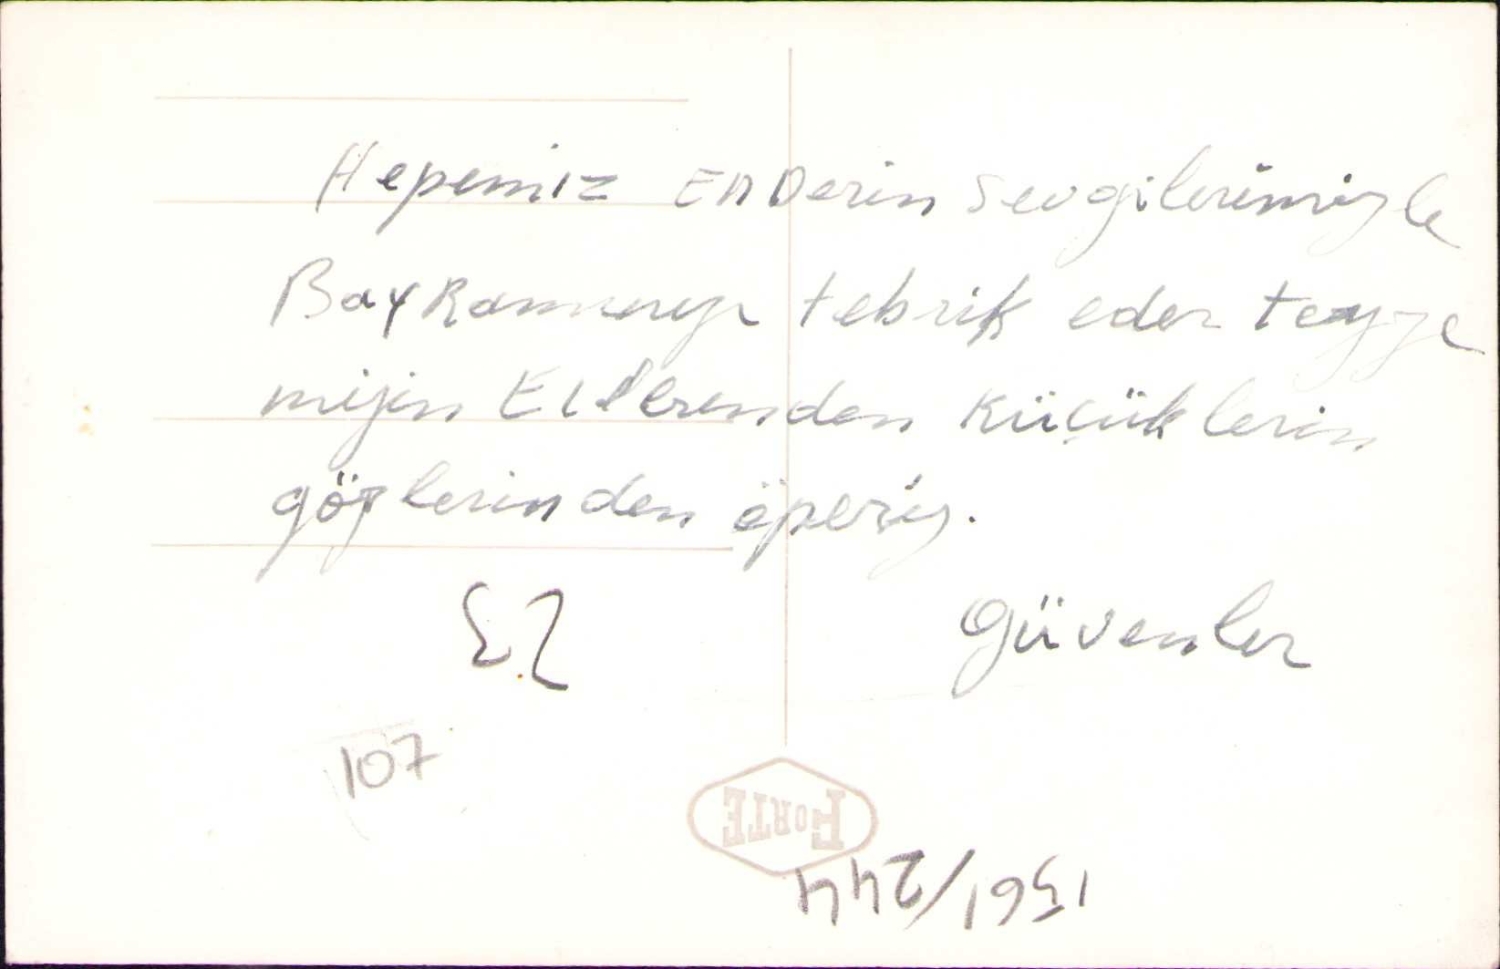 Hepemiz EnDerin Sevgilerimizle
BayRamınızı tebrik eder teyze
mizin Ellerenden küçüklerin
gözlerinden öperiz.
Güvenler
107
FORTE